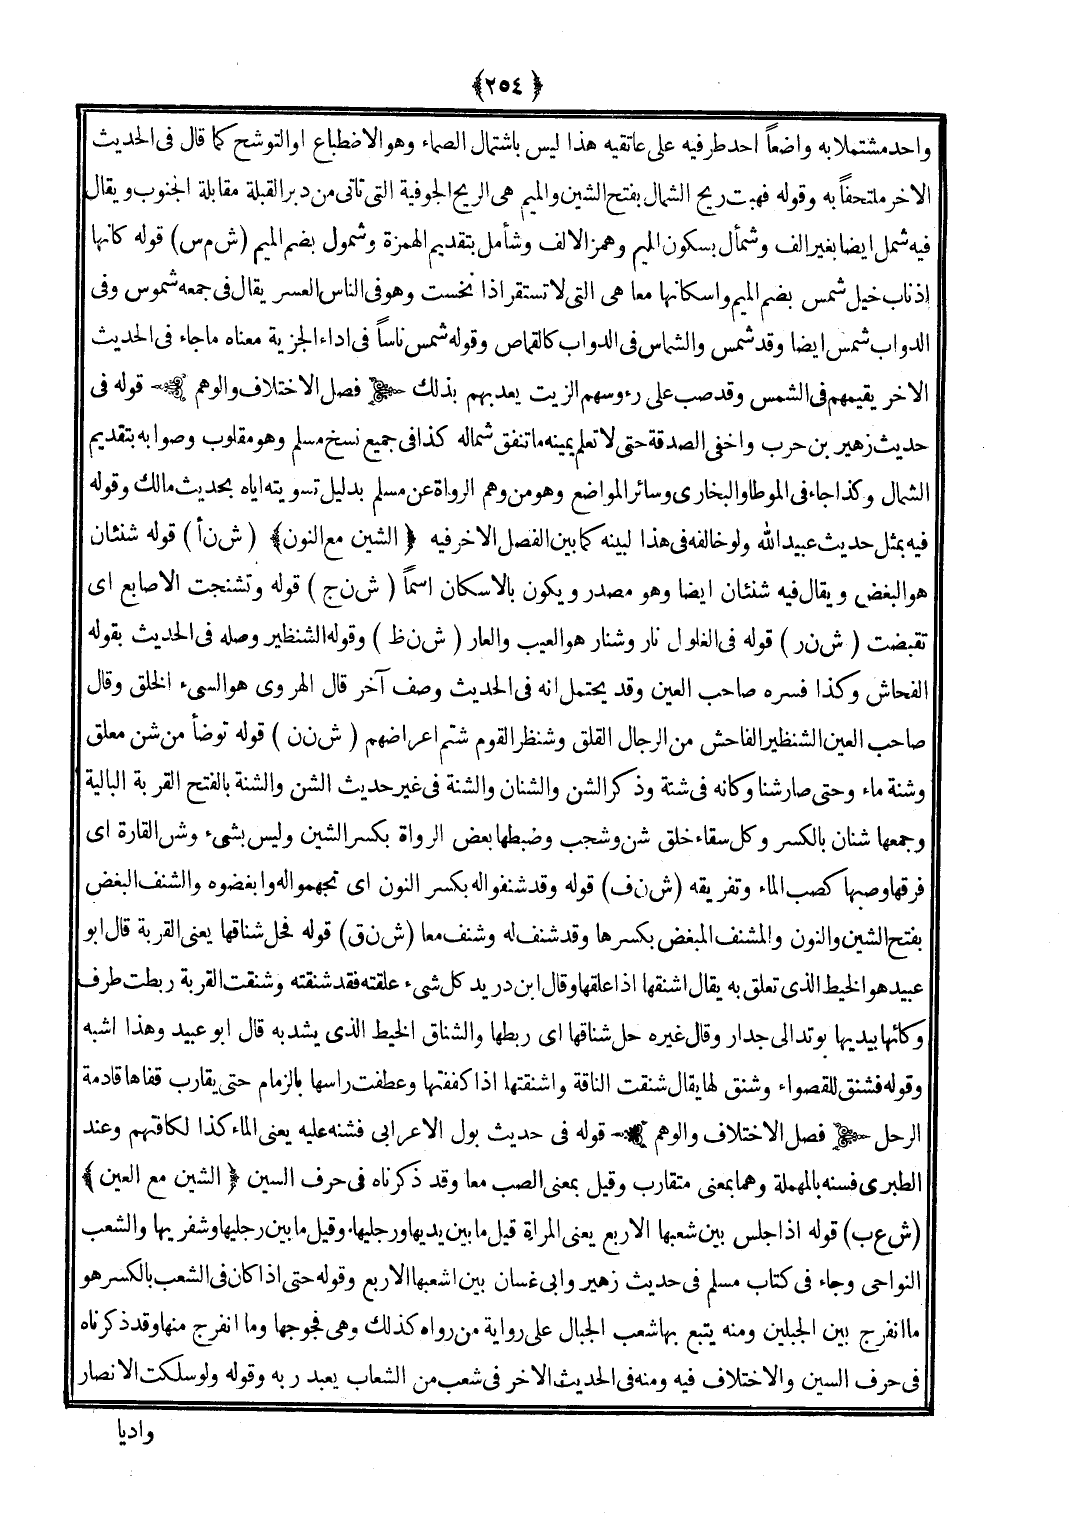 ﴿٢٥٤﴾
واحد مشتملا به واضعاً احد طرفيه على عاتقيه هذا ليس باشتمال الصماء وهو الاضطباع او التوشح كما قال فى الحديث
الاخر ملتحفاً به وقوله فهبت ريح الشمال بفتح الشين والميم هى الريح الجوفية التى تاتى من دبر القبلة مقابلة الجنوب ويقال
فيه شمل ايضا بغير الف وشمأل بسكون الميم وهمز الالف وشأمل بتقديم الهمزة وشمول بضم الميم (ش م س) قوله كانها
اذناب خيل شمس بضم الميم واسكانها معا هى التى لا تستقر اذا نخست وهو فى الناس العسر يقال فى جمعه شموس وفى
الدواب شمس ايضا وقد شمس والشماس فى الدواب كالقماص وقوله شمس ناساً فى اداء الجزية معناه ماجاء فى الحديث
الاخر يقيمهم فى الشمس وقد صب على رءوسهم الزيت يعذبهم بذلك فصل الاختلاف والوهم قوله فى
حديث زهير بن حرب واخفى الصدقة حتى لا تعلم يمينه ما تنفق شماله كذا فى جميع نسخ مسلم وهو مقلوب وصوابه بتقديم
الشمال وكذا جاء فى الموطا والبخارى وسائر المواضع وهو من وهم الرواة عن مسلم بدليل تسويته اياه بحديث مالك وقوله
فيه بمثل حديث عبيد الله ولو خالفه فى هذا لبينه كما بين الفصل الاخر فيه ﴿ الشين مع النون﴾ (ش ن أ) قوله شنئان
هو البغض ويقال فيه شنئان ايضا وهو مصدر ويكون بالاسكان اسماً (ش ن ج) قوله وتشنجت الاصابع اى
تقبضت (ش ن ر) قوله فى الغلول نار وشنار هو العيب والعار (ش ن ظ) وقوله الشنظير وصله فى الحديث بقوله
الفحاش وكذا فسره صاحب العين وقد يحتمل انه فى الحديث وصف آخر قال الهروى هو السىء الخلق وقال
صاحب العين الشنظير الفاحش من الرجال القلق وشنظر القوم شتم اعراضهم (ش ن ن) قوله توضأ من شن معلق
وشنة ماء وحتى صار شنا وكانه فى شنة وذكر الشن والشنان والشنة فى غير حديث الشن والشنة بالفتح القربة البالية
وجمعها شنان بالكسر وكل سقاء خلق شن وشجب وضبطها بعض الرواة بكسر الشين وليس بشىء وشن الغارة اى
فرقها وصبها كصب الماء وتفريقه (ش ن ف) قوله وقد شنفوا له بكسر النون اى تجهموا له وابغضوه والشنف البغض
بفتح الشين والنون والمشنف المبغض بكسرها وقد شنف له وشنف معا (ش ن ق) قوله فحل شناقها يعنى القربة قال ابو
عبيد هو الخيط الذى تعلق به يقال اشنقها اذا علقها وقال ابن دريد كل شىء علقته فقد شنقته وشنقت القربة ربطت طرف
وكائها بيديها بوتد الى جدار وقال غيره حل شناقها اى ربطها والشناق الخيط الذى يشد به قال ابو عبيد وهذا اشبه
وقوله فشنق للقصواء وشنق لها يقال شنقت الناقة واشنقتها اذا كففتها وعطفت راسها بالزمام حتى يقارب قفاها قادمة
الرحل فصل الاختلاف والوهم قوله فى حديث بول الاعرابى فشنه عليه يعنى الماء كذا لكافتهم وعند
الطبرى فسنه بالمهملة وهما بمعنى متقارب وقيل بمعنى الصب معا وقد ذكرناه فى حرف السين ﴿ الشين مع العين ﴾
(ش ع ب) قوله اذا جلس بين شعبها الاربع يعنى المراة قيل مابين يديها ورجليها وقيل مابين رجليها وشفريها والشعب
النواحى وجاء فى كتاب مسلم فى حديث زهير وابى غسان بين اشعبها الاربع وقوله حتى اذا كان فى الشعب بالكسر هو
ما انفرج بين الجبلين ومنه يتبع بها شعب الجبال على رواية من رواه كذلك وهى فجوجها وما انفرج منها وقد ذكرناه
فى حرف السين والاختلاف فيه ومنه فى الحديث الاخر فى شعب من الشعاب يعبد ربه وقوله ولو سلكت الانصار
واديا